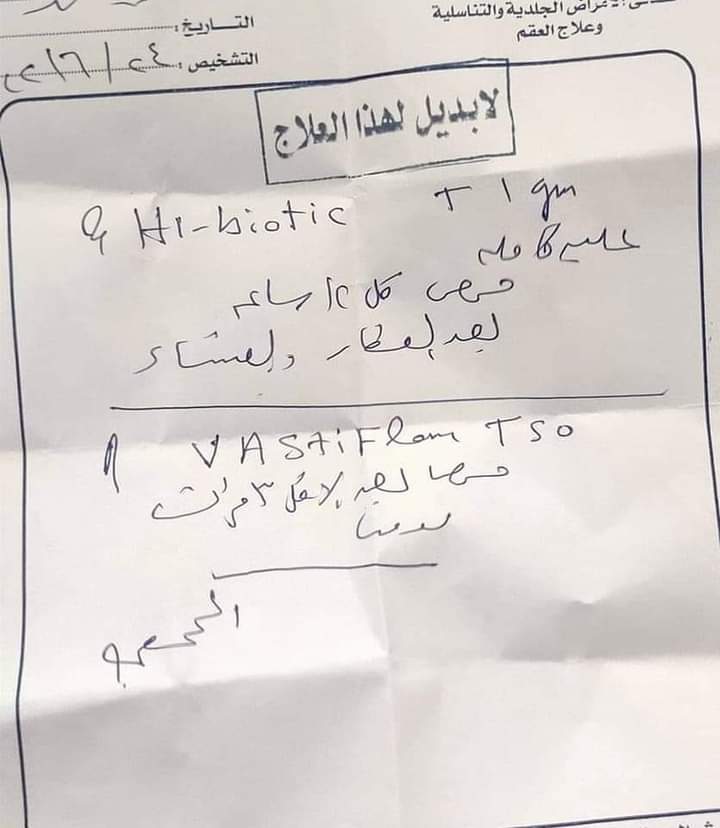 الأمراض الجلدية والتناسلية
وعلاج العقم
التـــاريخ:
التشخيص: ٢٤ / ٦ /
لا بديل لهذا العلاج
Hi-biotic T 1 gm
علبه كامله
قرص كل ١٢ ساعه
بعد الفطار والعشاء
VAStiFlam T50
قرص بعد الاكل ٣ مرات
يوميا